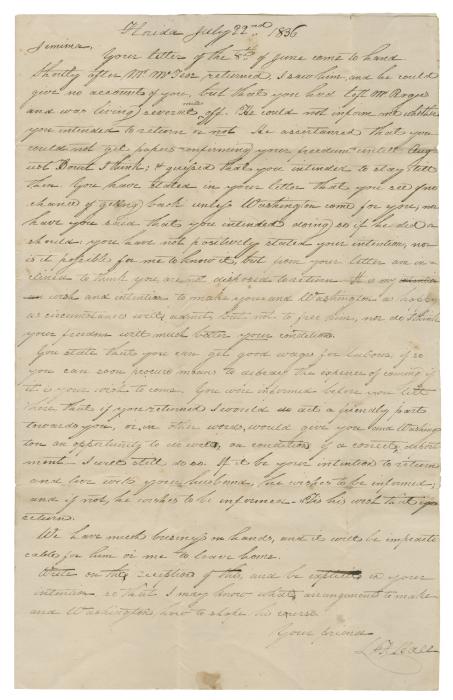 Florida July 22nd 1836
Jemima,
Your letter of the 8th of June come to hand
Shortly after Mr returned, I saw him, and he could
give no accounts of you, but that you had left Mr
and was living several mile off. He could not inform me whether
you intended to return or not He ascertained that you
could not get papers confirming your freedom until Aug
ust Court I think; & guessed that you intended to stay till
then. You have stated in your letter that you see [no
chance of getting back unless Washington come for you, nor
have you said that you intended doing so if he did or
should; you have not positively stated your intention, nor
is it possible for me to know it, but from your letter am in
clined to think you are not disposed to return It is my
wish and intention to make you and Washington as happy
as circumstances will admit, but not to free him, nor do I think
your freedom will much better your condition.
You state that you can get good wage for labour, if so
you can soon procure means to defray the expense of coming if
it is your wish to come. You were informed before you left
here that if you returned I would act a friendly part
towards you, or, in other words, would give you and Washing
ton an opportunity to do well, on condition of a correct deport
ment— I will still do so. If it be your intention to return
and live with your husband, he wishes to be informed,
and if not, he wishes to be informed— Tis his wish that you
return.
We have much business on hands, and it will be impracti
cable for him or me to leave home.
Write on the reception of this, and be explicit in your
intention so that I may know what arrangements to make
and Washington how to shape his course
Your friend